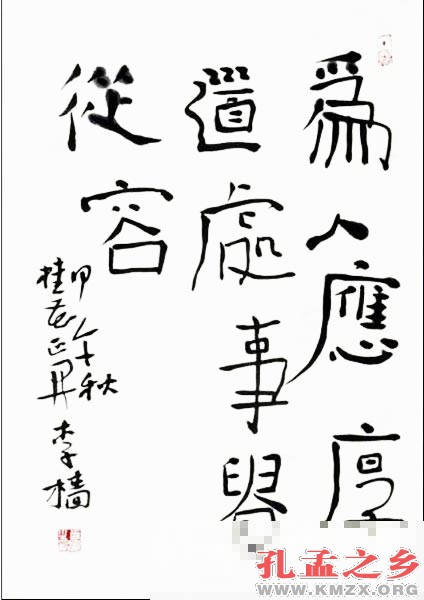 爲人應厚
道處事學
從容
甲午秋
桂花正開李檣
孔孟之乡
WWW.KMZX.ORG